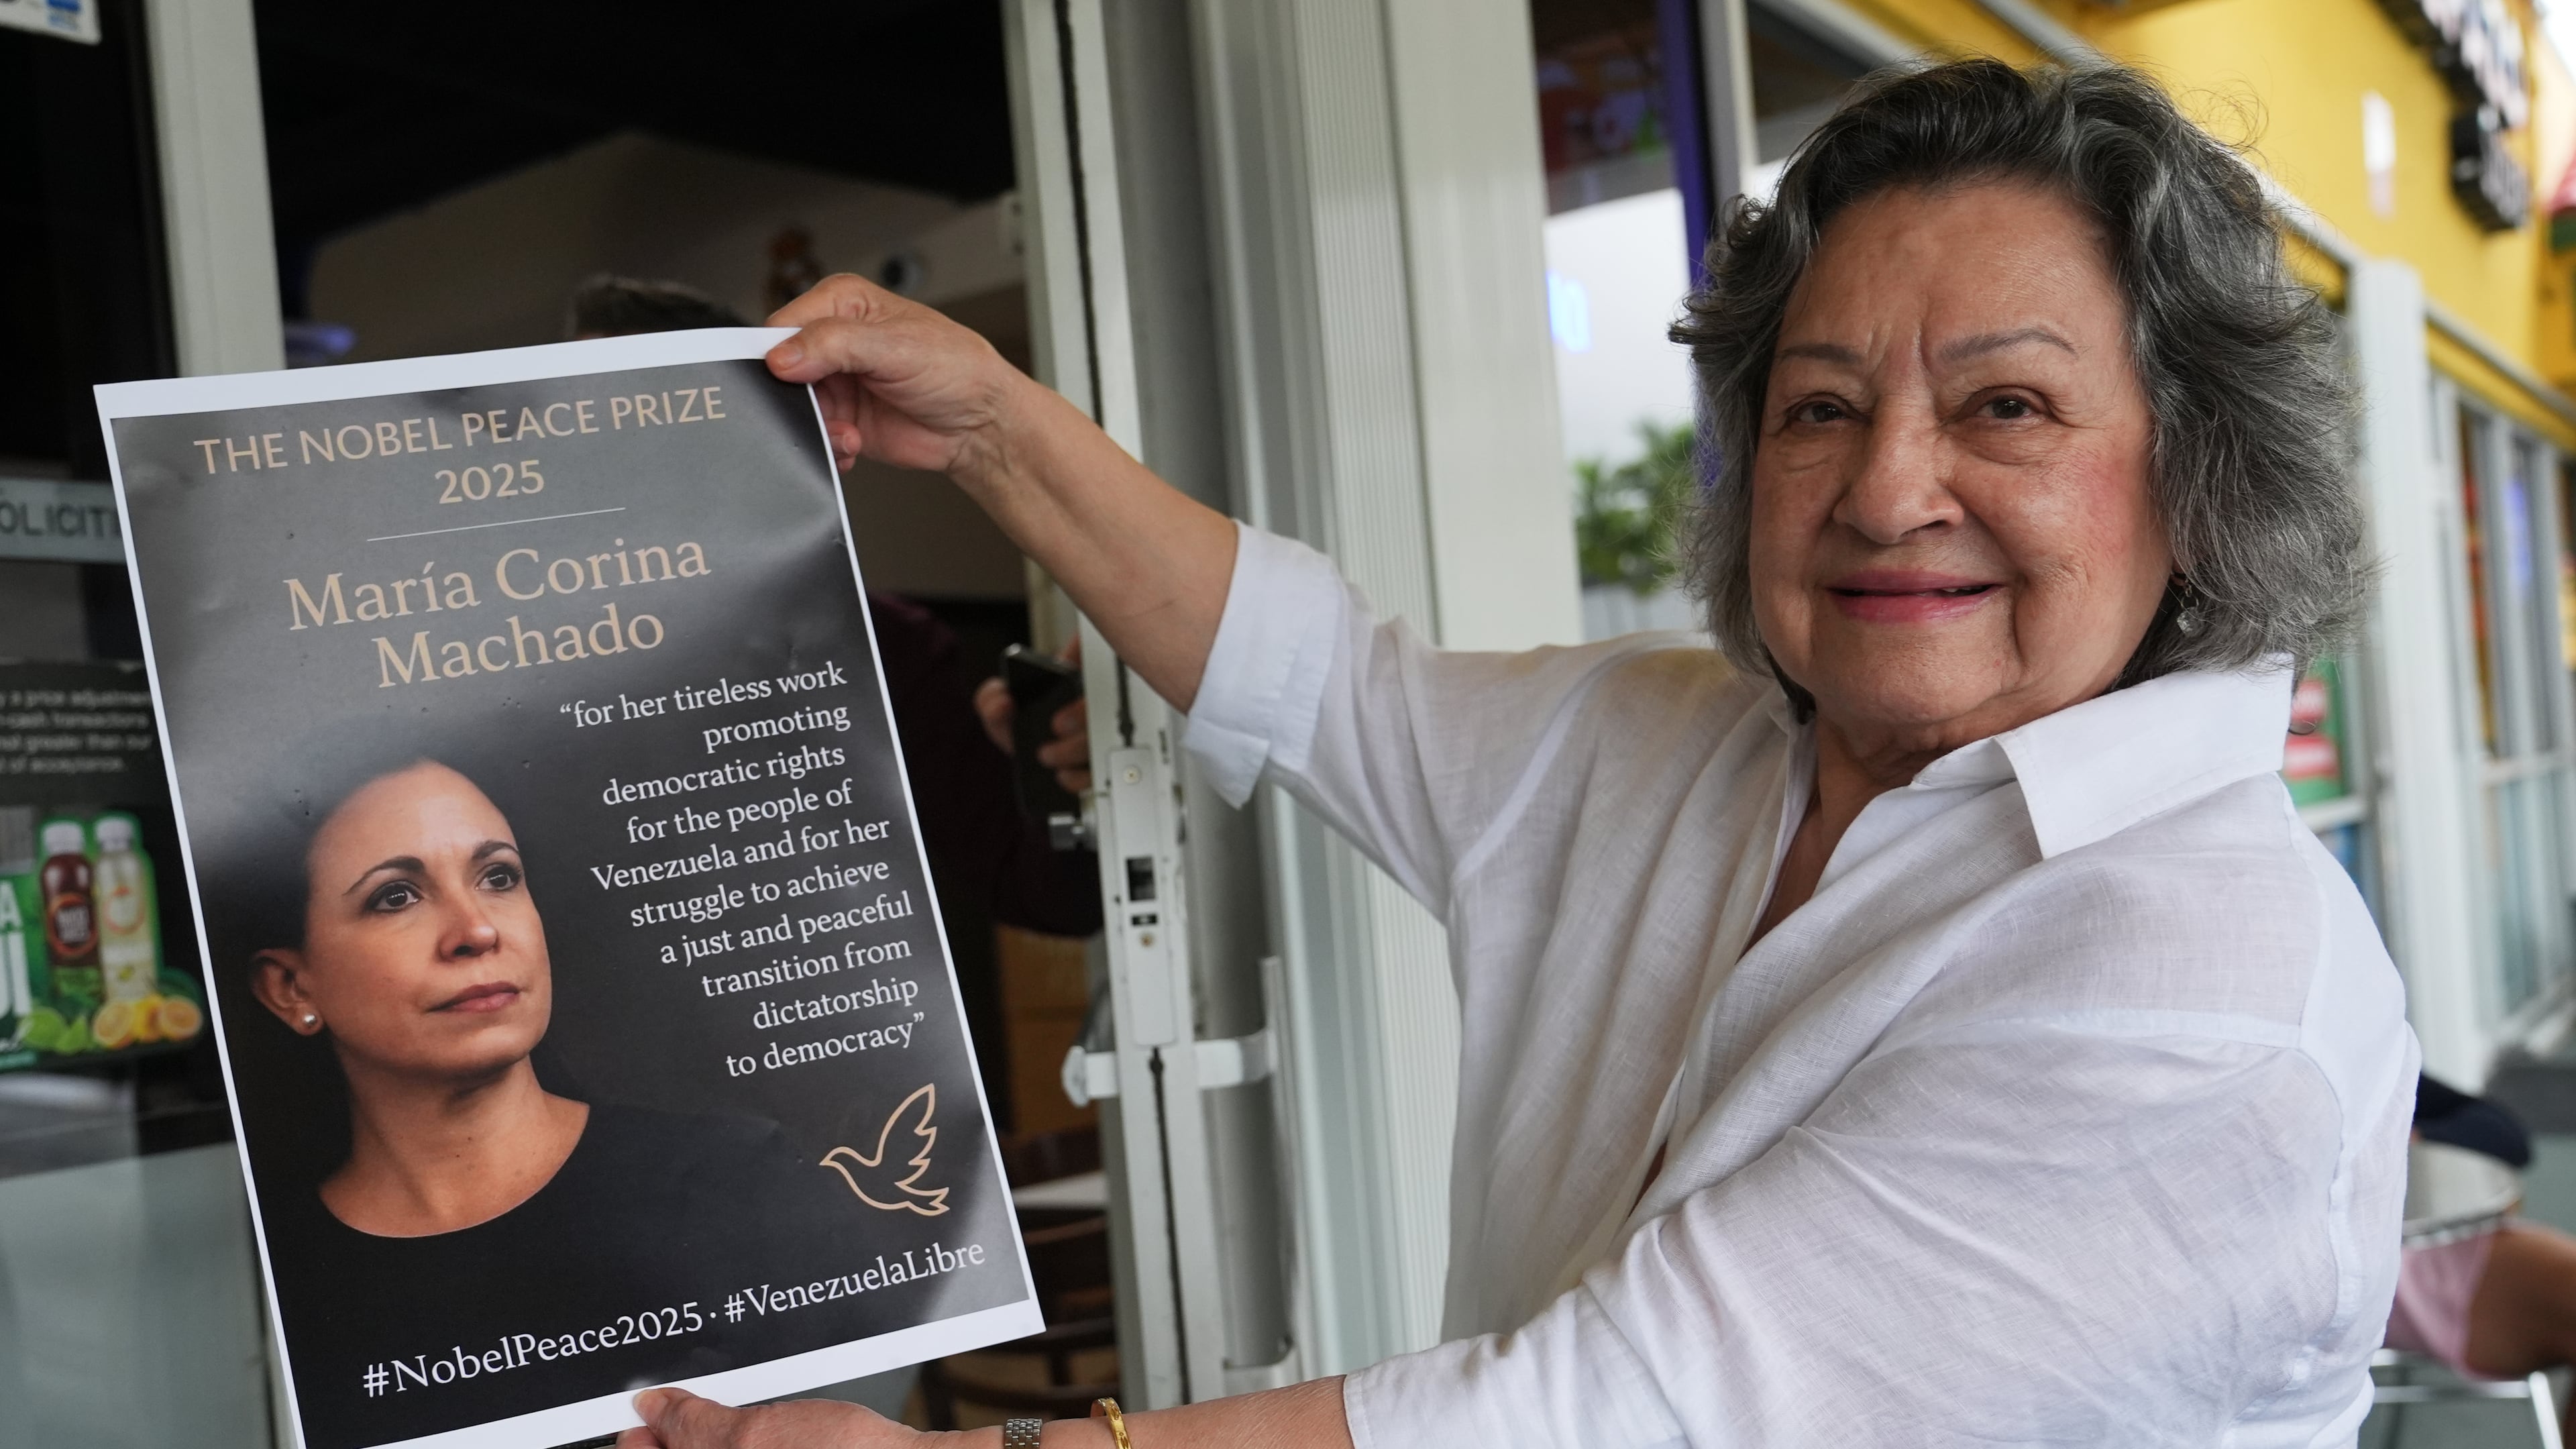 THE NOBEL PEACE PRIZE
2025
María Corina
Machado
“for her tireless work
promoting
democratic rights
for the people of
Venezuela and for her
struggle to achieve
a just and peaceful
transition from
dictatorship
to democracy”
#NobelPeace2025 · #VenezuelaLibre
price adjustment
transactions
not greater than our
of acceptance.